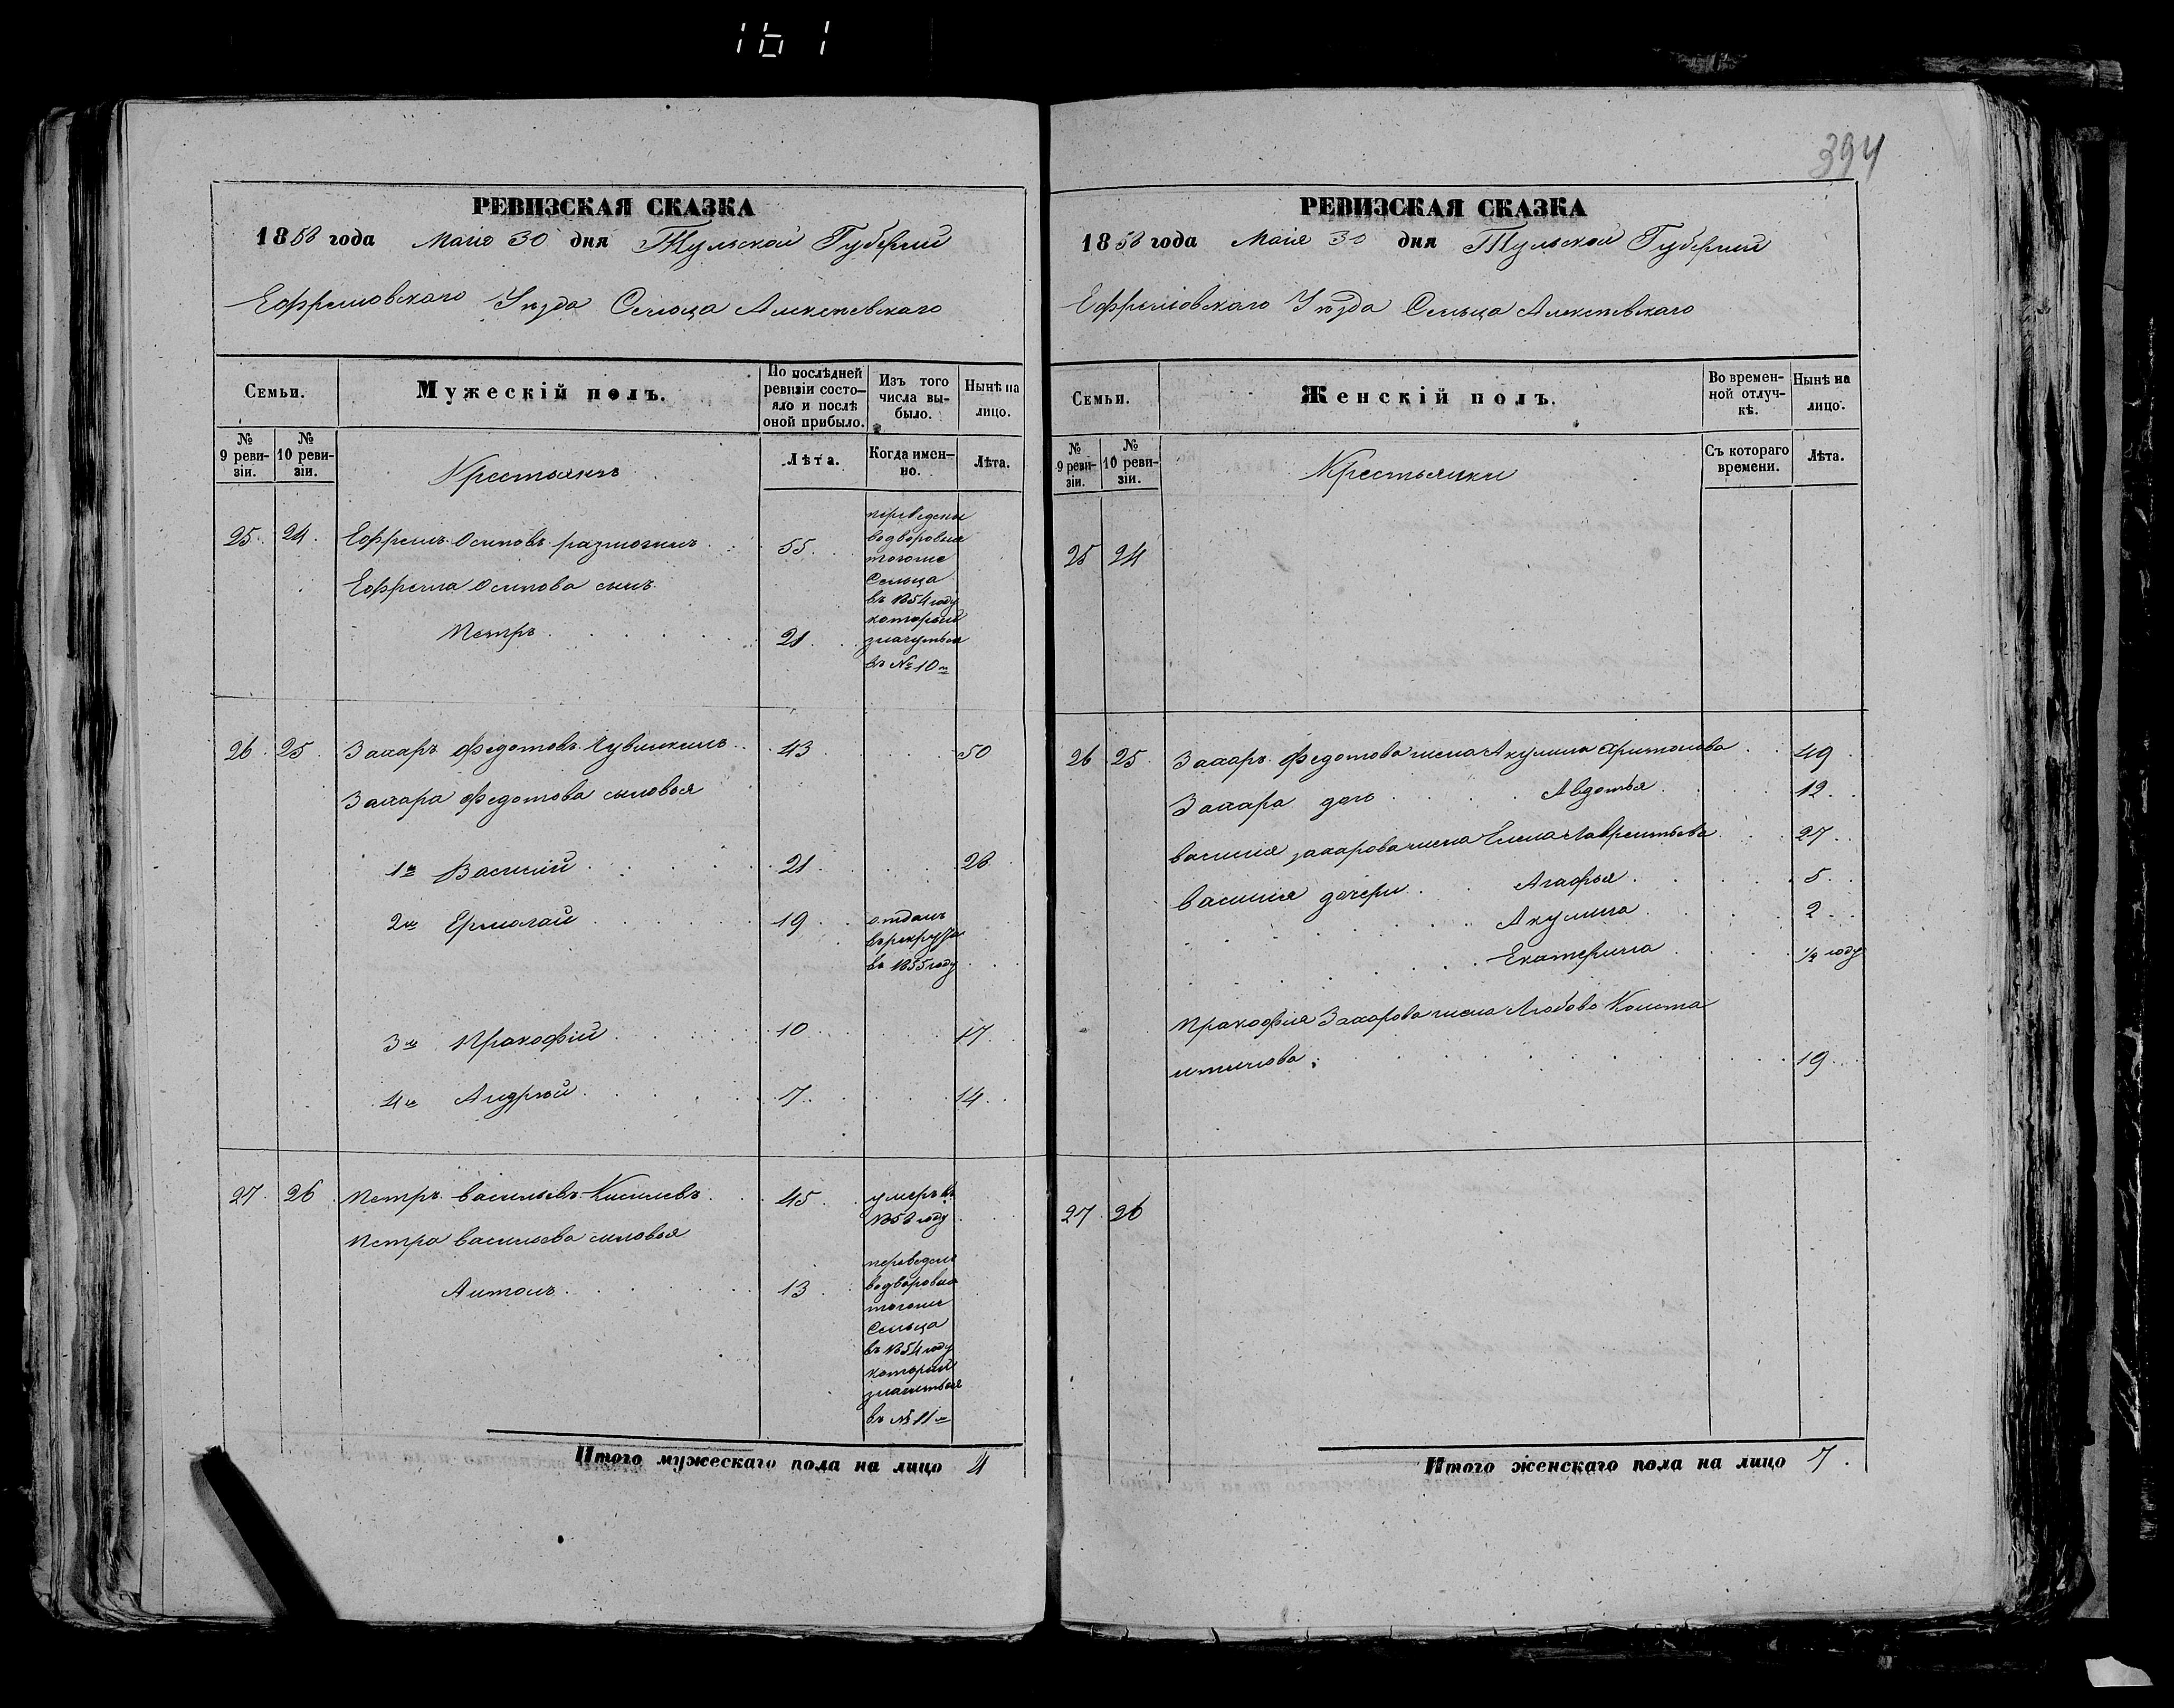 161
394
РЕВИЗСКАЯ СКАЗКА
1858 года Маiя 30 дня Тульской Губернiи
Ефремовскаго Уѣзда Сельца Алексѣевскаго
Семьи.
Мужескій полъ.
По послѣдней ревизіи состояло и послѣ оной прибыло.
Изъ того числа выбыло.
Нынѣ на лицо.
№ 9 ревизіи.
№ 10 ревизіи.
Крестьянъ
Лѣта.
Когда именно.
Лѣта.
25. 24. Ефремъ Осиповъ 55.
Ефрема Осипова сынъ
Петръ 21
переведены
водворовыя
тогоже
Сельца
въ 1854 году
которыи
значуться
въ № 10м
26. 25. Захаръ Федотовъ 43 50
Захара Федотова сыновья
1й Василій 21 28
2й Ермолай 19 отданъ
врекруты
въ 1855 году
3й Прокофій 10 17
4й Андрѣй 7 14
27. 26 Петръ Васильевъ Киселевъ 45 умеръ въ
1858 году
Петра Васильева сыновья
Антонъ 13
переведенъ
водворовыя
тогоже
Сельца
въ 1854 году
которыи
значиться
въ № 11м
Итого мужескаго пола на лицо 4
РЕВИЗСКАЯ СКАЗКА
1858 года Маiя 30 дня Тульской Губернiи
Ефремовскаго Уѣзда Сельца Алексѣевскаго
Семьи.
Женскій полъ.
Во временной отлучкѣ.
Нынѣ на лицо.
№ 9 ревизіи.
№ 10 ревизіи.
Крестьянки
Съ котораго времени.
Лѣта.
25 24
26 25. Захаръ Федотова жена Акулина Харитонова 49
Захара дочь Авдотья 12
Василия захарова жена Елена Лаврентьева 27
Василия дочери Агафья 5
Акулина 2
Екатерина 1/4 году
Прокофия Захарова жена Любовь Конста
нтинова 19
27. 26
Итого женскаго пола на лицо 7.